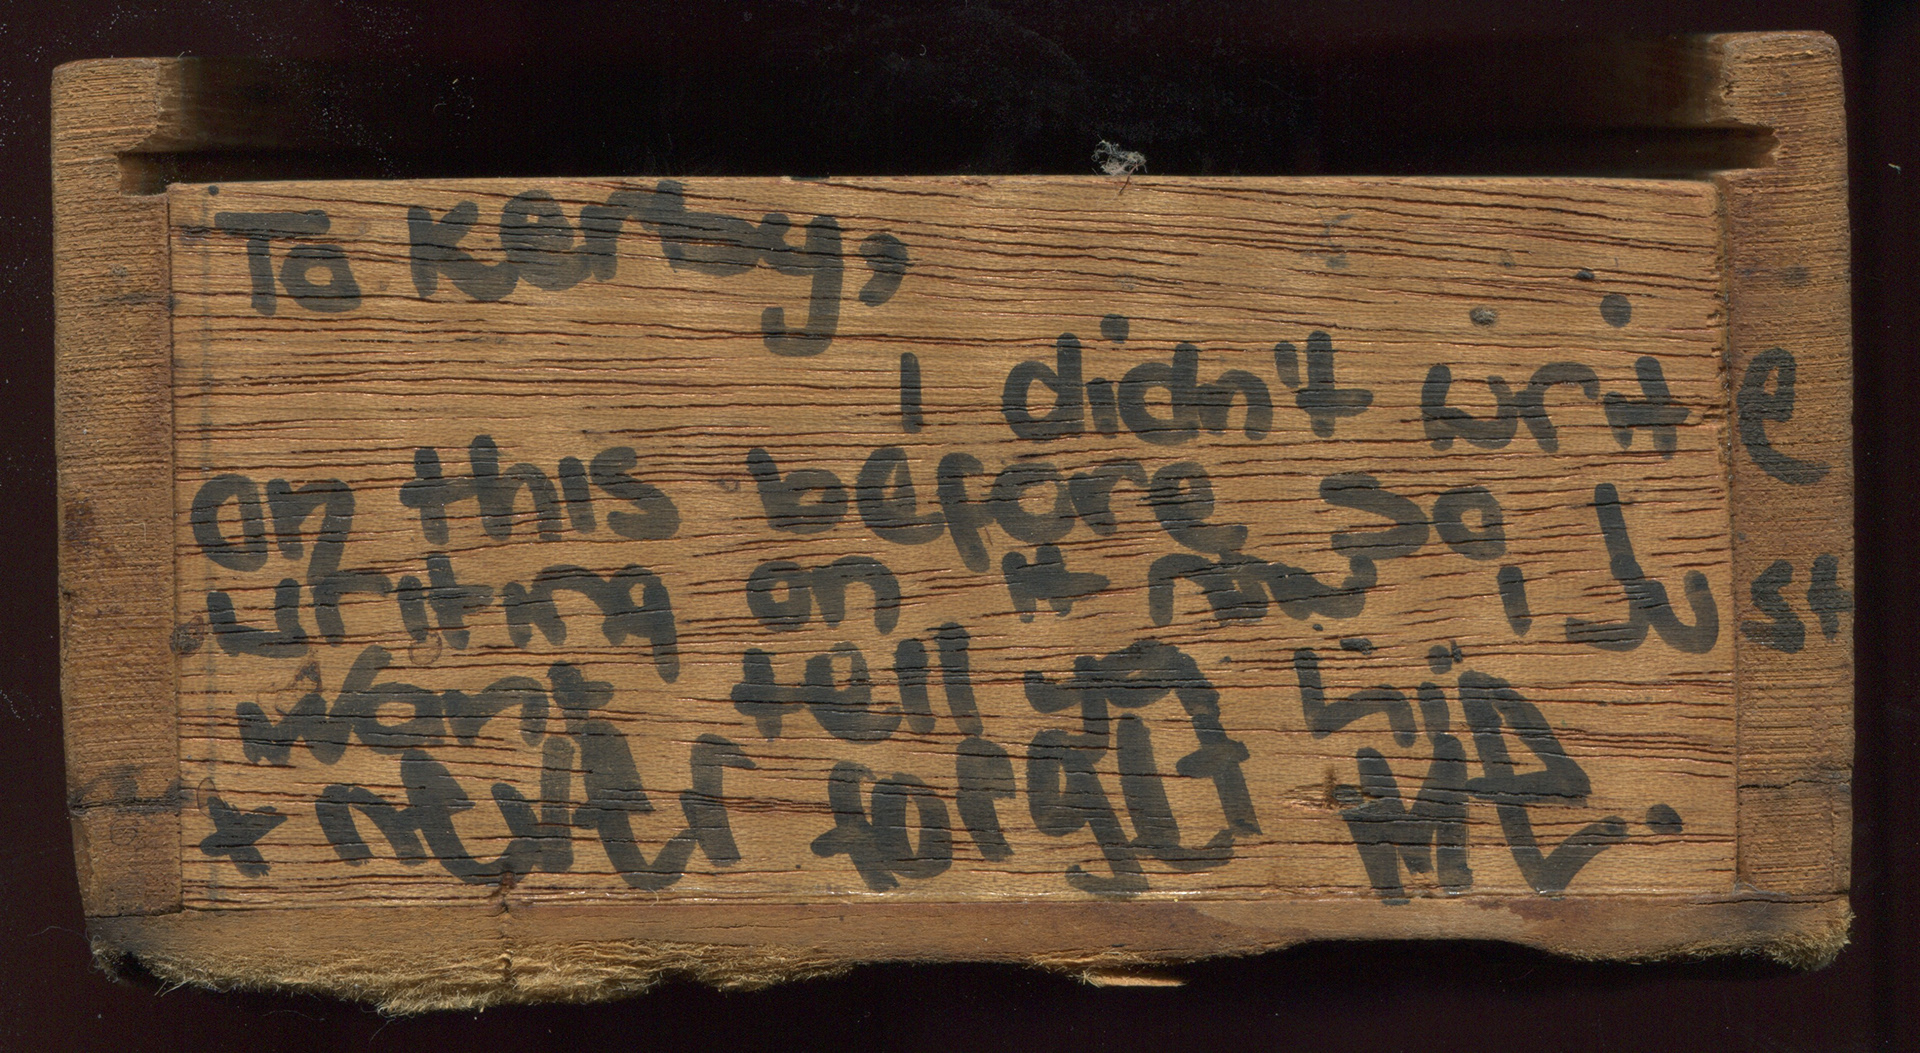 To Kerby,
I didn't write
on this before so
writing on it now i Just
want tell hi
+ never forget ME.